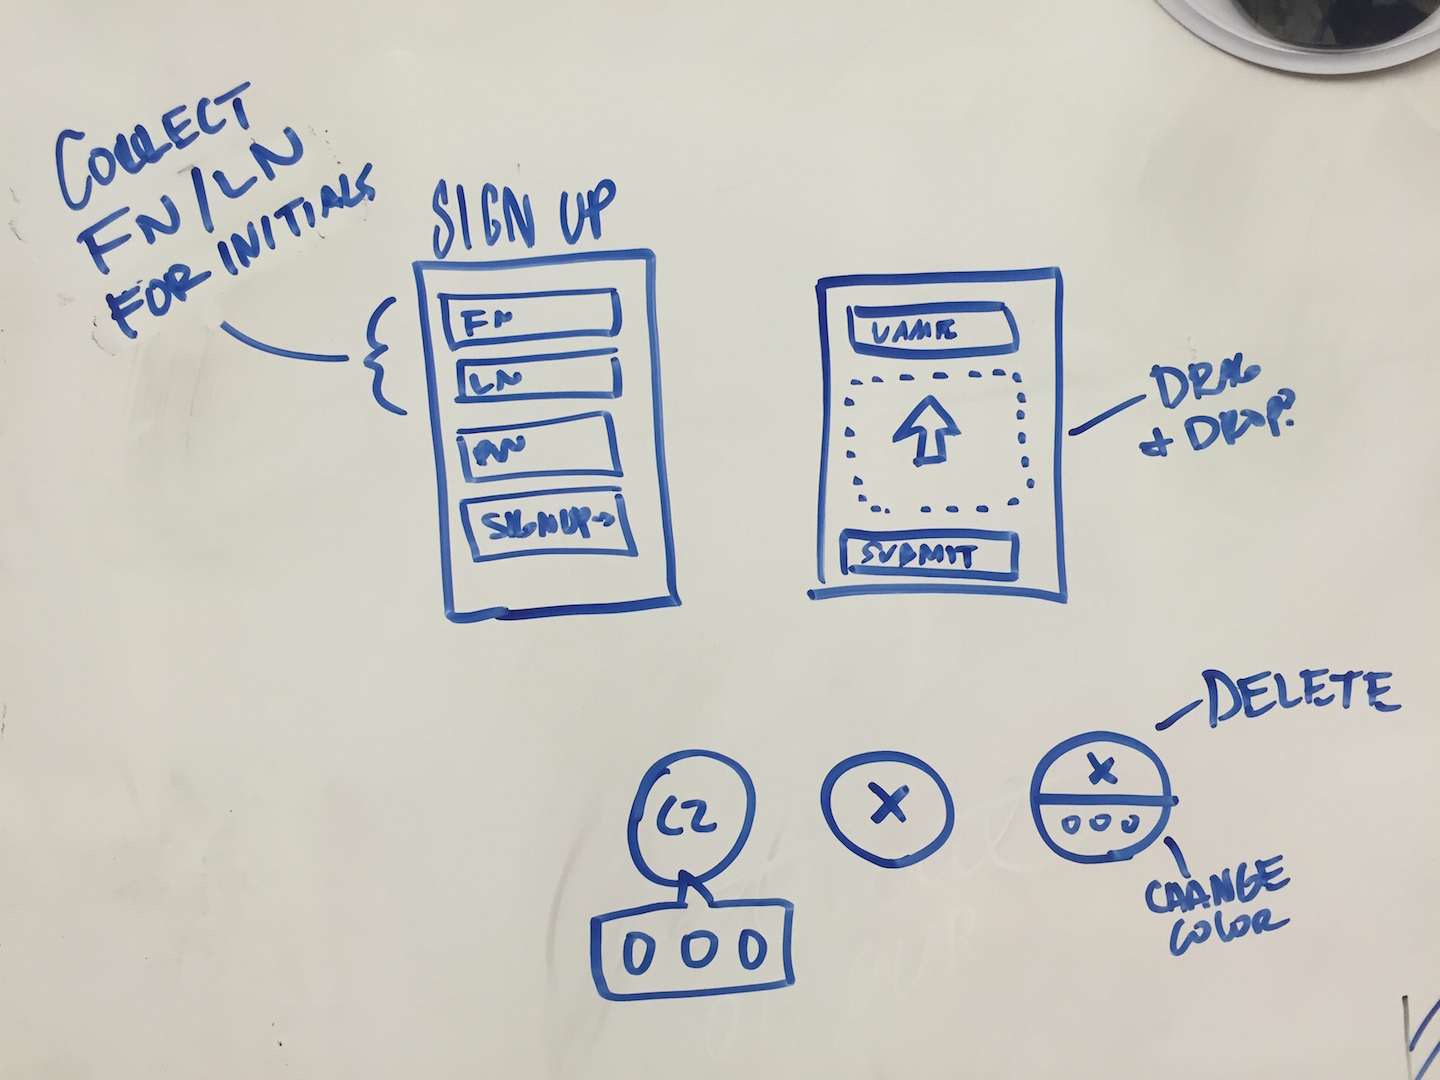 COLLECT
FN/LN
FOR INITIALS
SIGN UP
FN
LN
SIGNUP→
NAME
SUBMIT
DRAG
& DROP?
CZ
X
X
DELETE
CHANGE
COLOR